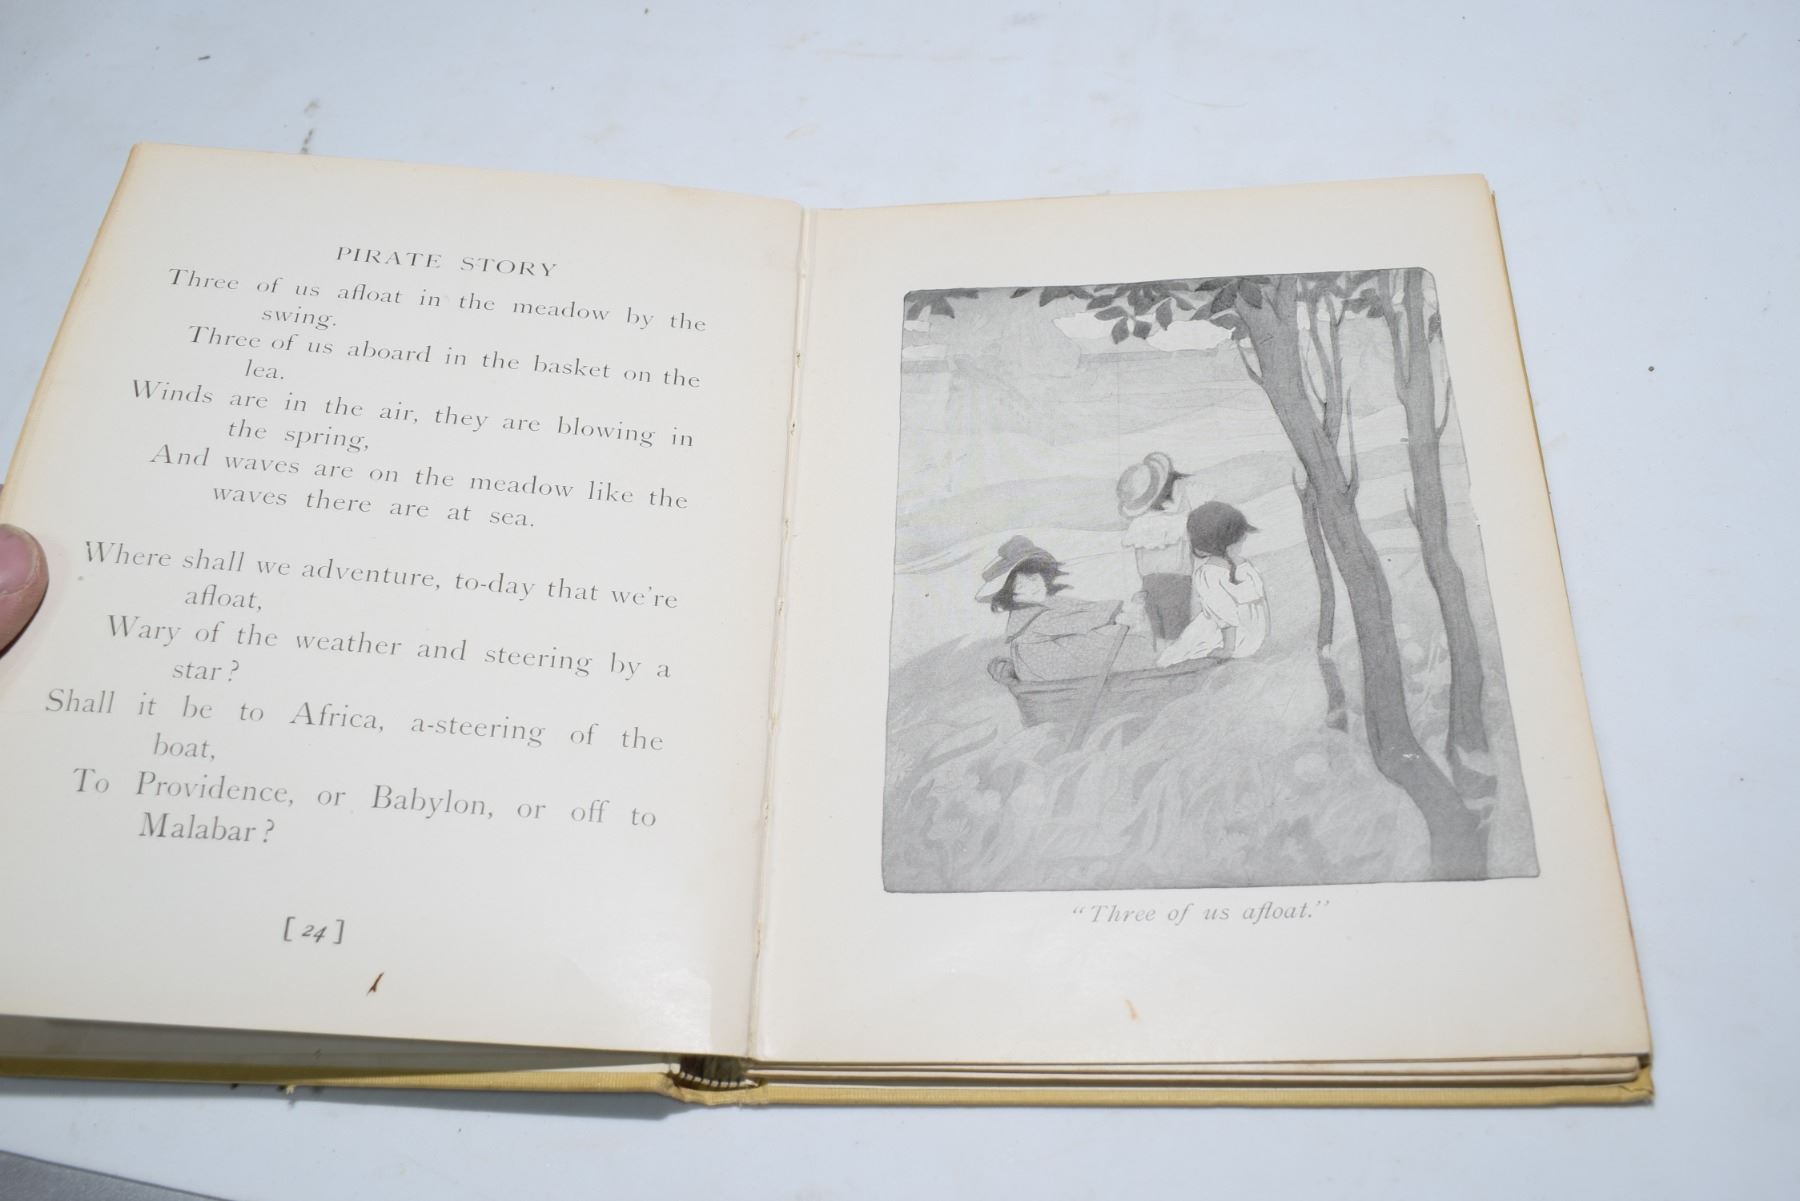 PIRATE STORY
Three of us afloat in the meadow by the
swing.
Three of us aboard in the basket on the
lea.
Winds are in the air, they are blowing in
the spring,
And waves are on the meadow like the
waves there are at sea.
Where shall we adventure, to-day that we're
afloat,
Wary of the weather and steering by a
star?
Shall it be to Africa, a-steering of the
boat,
To Providence, or Babylon, or off to
Malabar?
[24]
"Three of us afloat."